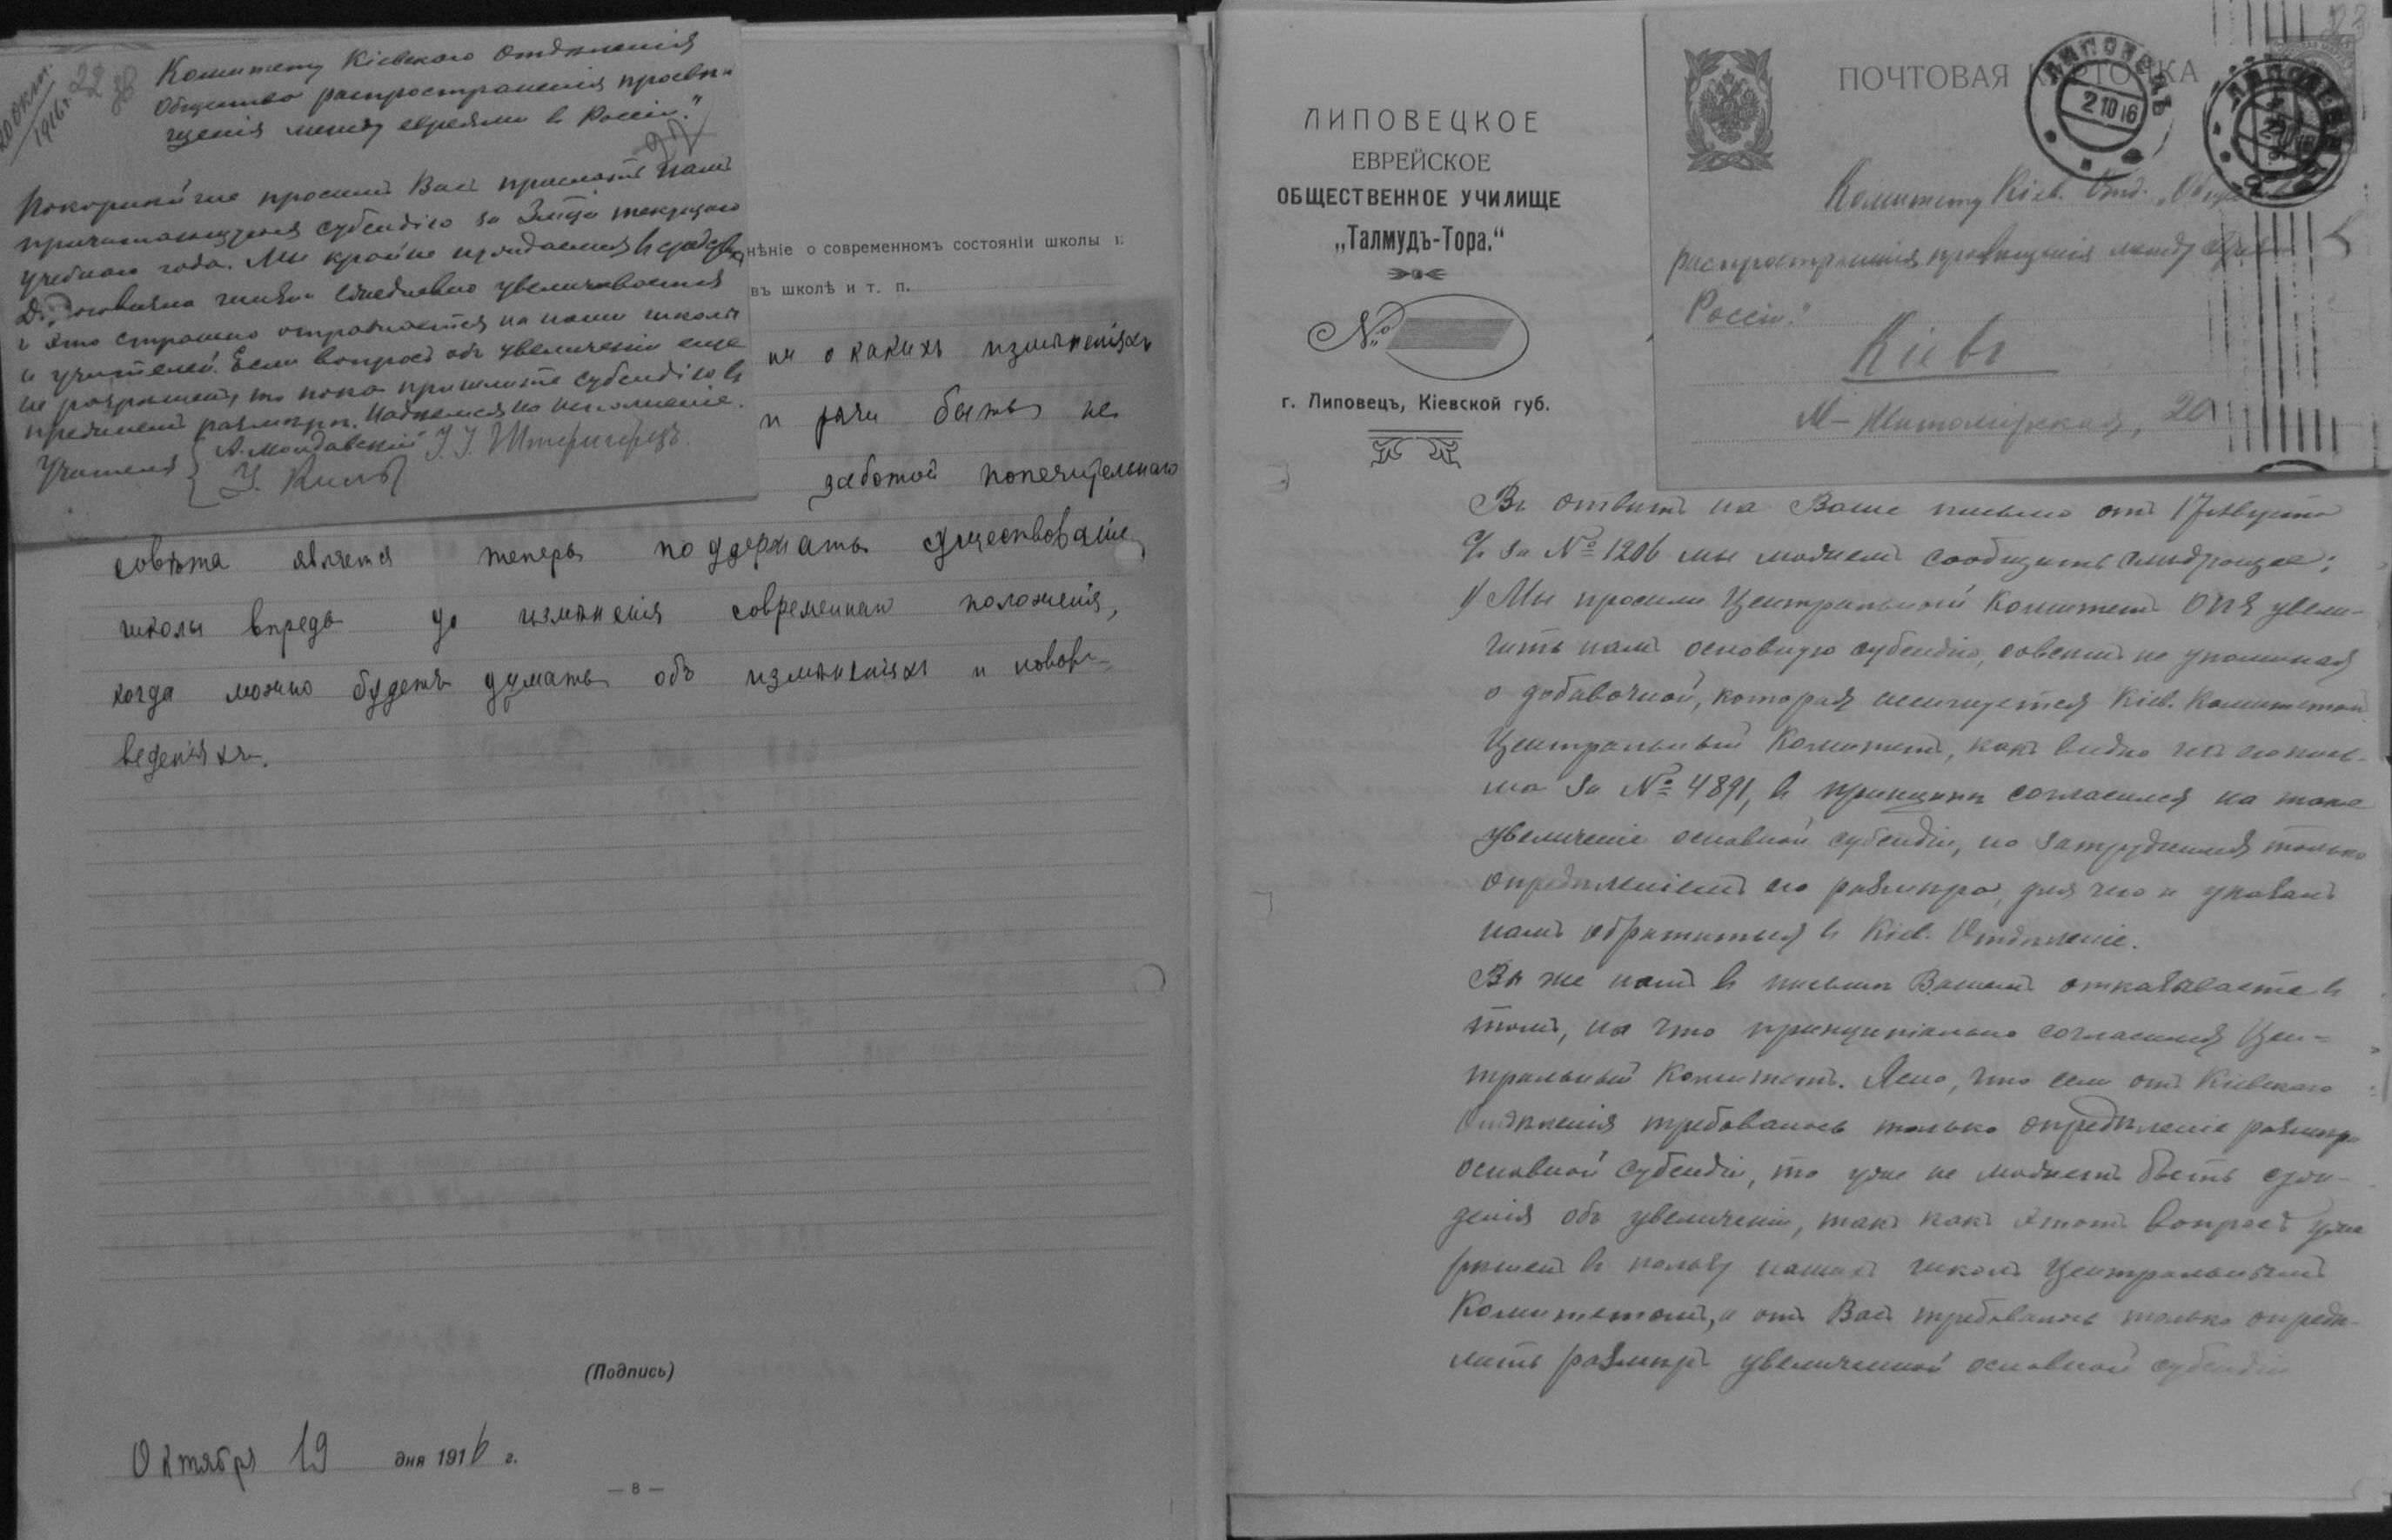 20 Окт.
1916 г.
22
Комитету Кіевскаго Отдѣленія
Общества распространенія просвѣ-
щенія между евреями в Россіи."
Покорнѣйше просимъ Васъ прислать намъ
причитающуюся субсидію за текущаго
учебнаго года. Мы крайне нуждаемся в
ежедневно увеличивается
и это страшно отражается на наши школы
и учителей. Если вопросъ объ увеличеніи еще
не разрѣшенъ, то пока пришлите субсидію въ
прежнемъ размѣрѣ. Надѣемся на исполненіе.
Учителя А. Молдавскій
нѣніе о современномъ состояніи школы и
въ школѣ и т. п.
ни о какихъ измѣненіяхъ
и рѣчи быть не
заботой попечительнаго
совѣта является теперь поддержать существованіе
школы впредь до измѣненія современнаго положенія,
когда можно будетъ думать объ измѣненіяхъ и нововъ-
веденіяхъ.
(Подпись)
Октября 19 дня 1916 г.
— 8 —
23
ЛИПОВЕЦКОЕ
ЕВРЕЙСКОЕ
ОБЩЕСТВЕННОЕ УЧИЛИЩЕ
„Талмудъ-Тора."
№
г. Липовецъ, Кіевской губ.
ПОЧТОВАЯ КАРТОЧКА
ЛИПОВЕЦЪ
2 10 16
Комитету Кіев. Отд. „Общ
распространенія просвѣщенія между
Россіи."
Кіевъ
М-Житомірская, 20
Въ отвѣтъ на Ваше письмо отъ 17 августа
с/г за № 1206 мы можемъ сообщить слѣдующее:
1) Мы просили Центральный Комитетъ ОПЕ увели-
чить намъ основную субсидію, совсѣмъ не упоминая
о добавочной, которая ассигнуется Кіев. Комитетомъ
Центральный Комитетъ, какъ видно изъ его пись-
ма за № 4891, въ принципѣ согласился на такое
увеличеніе основной субсидіи, но затруднился только
опредѣленіемъ его размѣра, для чего и указалъ
намъ обратиться въ Кіев. Отдѣленіе.
Вы же намъ въ письмѣ Вашемъ отказываете въ
томъ, на что принципіально согласился Цен-
тральный Комитетъ. Ясно, что если отъ Кіевскаго
Отдѣленія требовалось только опредѣленіе размѣра
основной субсидіи, то уже не можетъ быть суж-
денія объ увеличеніи, такъ какъ этотъ вопросъ уже
рѣшенъ въ пользу нашихъ школъ Центральнымъ
Комитетомъ, а отъ Васъ требовалось только опредѣ-
лить размѣръ увеличенной основной субсидіи